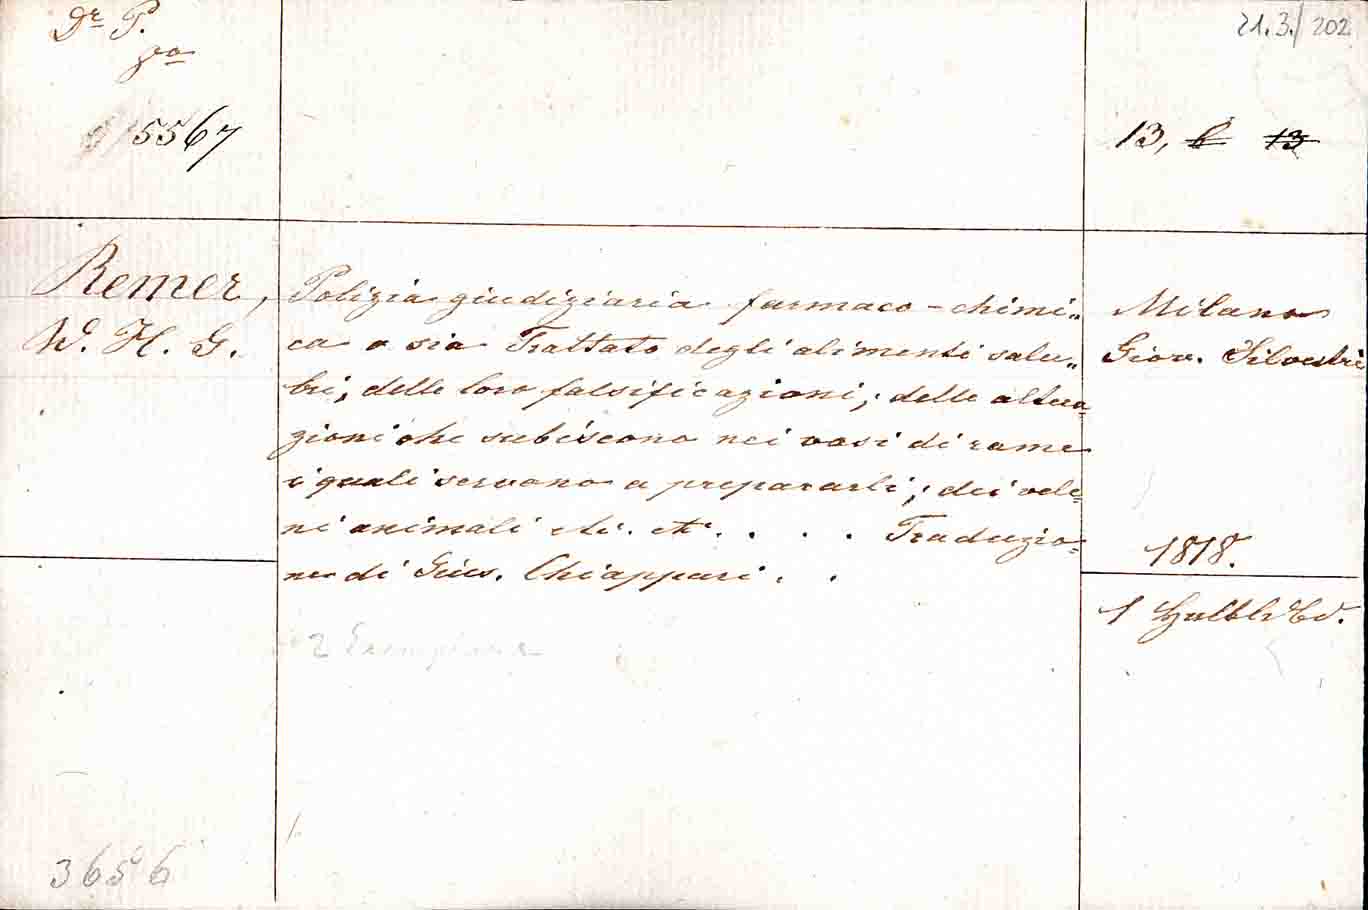 Dr P.
8o
5567
21.3./202
13, b 13
Remer,
W. H. G.
Polizia giudiziaria farmaco-chimi„
ca o sia Trattato degli alimenti salu„
bri, delle loro falsificazioni; delle altera=
zioni che subiscono nei vasi di rame
i quali servono a prepararli; dei vele=
ni animali etc. etc. . . . Traduzio=
ne di Gius. Chiappari . .
2 Exemplare
Milano
Giov. Silvestri
1818.
1 Halblrbd.
3656